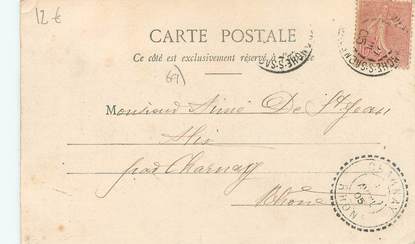 12 €
CARTE POSTALE
Ce côté est exclusivement réservé à l'adresse
69
Monsieur Aimé De St Jean
Alix
par Charnay
Rhône
CHARNAY
RHÔNE
05